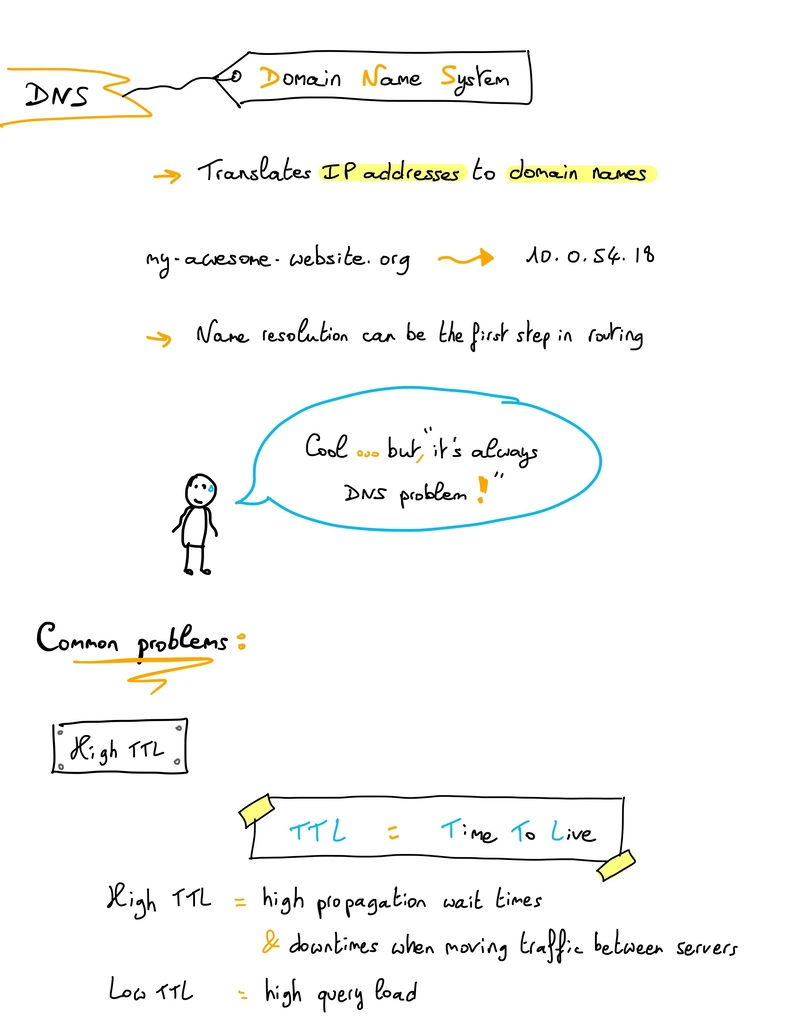 DNS
Domain Name System
→ Translates IP addresses to domain names
my-awesome-website.org → 10.0.54.18
→ Name resolution can be the first step in routing
Cool ... but, "it's always
DNS problem !"
Common problems:
High TTL
TTL = Time To Live
High TTL = high propagation wait times
& downtimes when moving traffic between servers
Low TTL = high query load